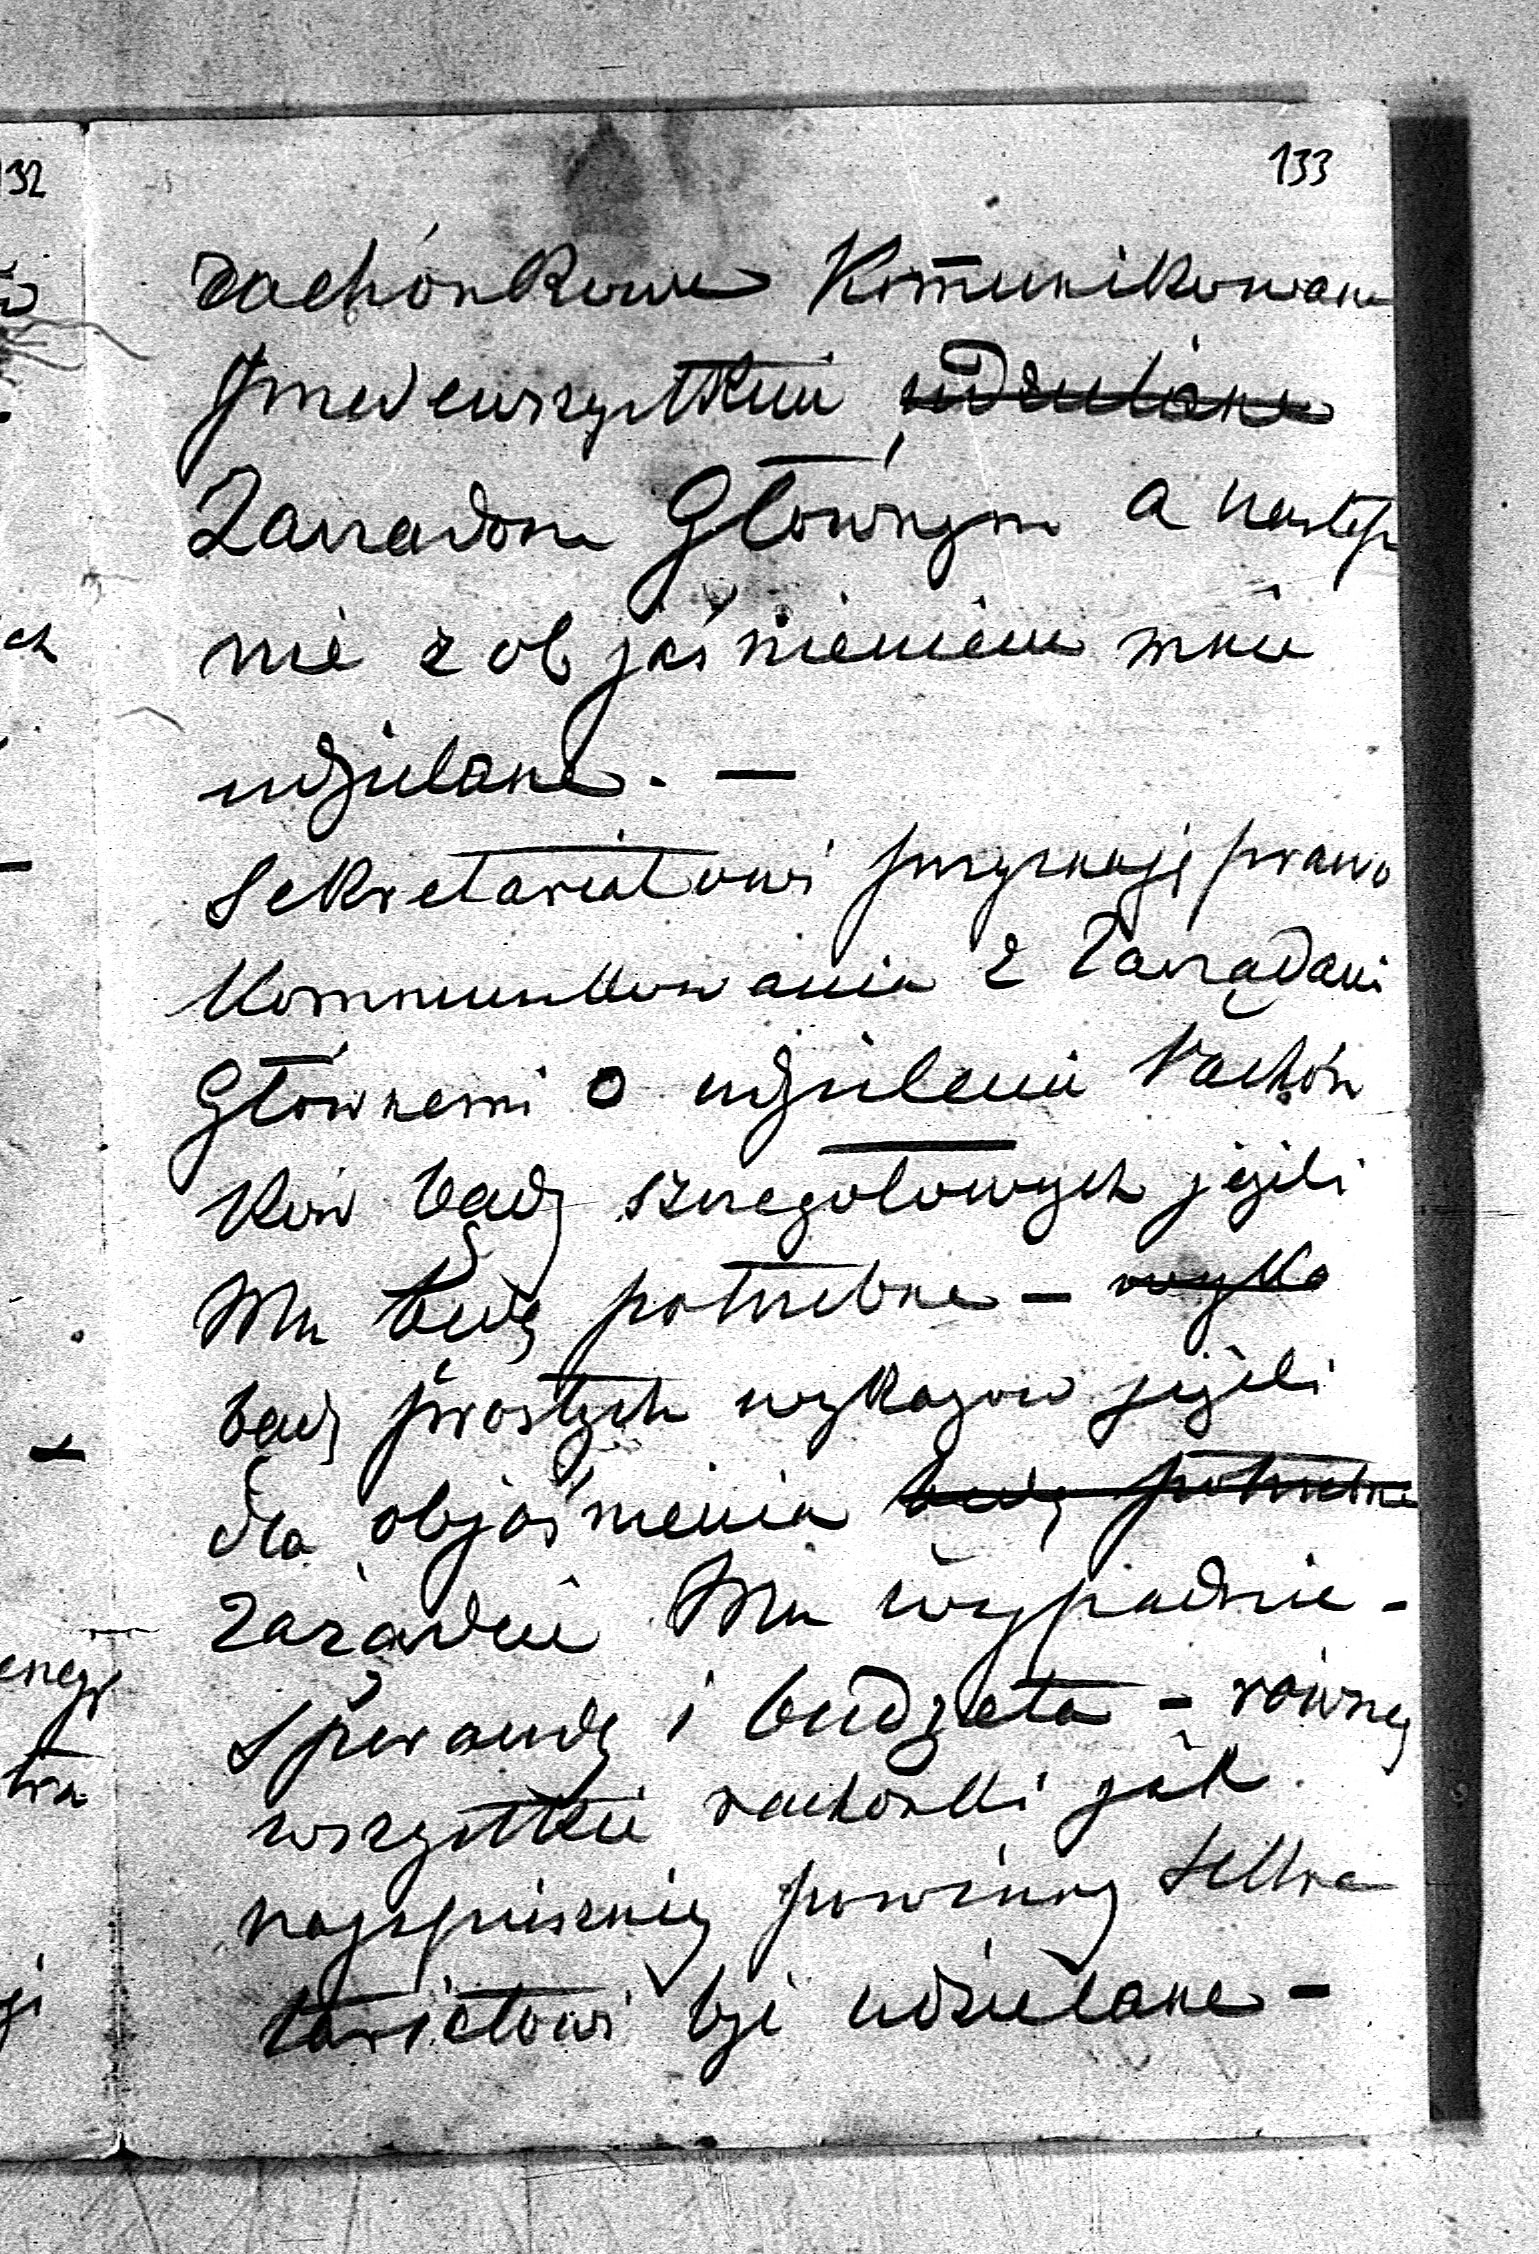 133
rachónkowe Komunikowane
przedewszystkiem udzielane
Zarządom Głównym a następ
nie z objaśnieniem mnie
udzielane. —
Sekretariatowi przyznaję prawo
Kommunikowania z Zarządami
Głównemi o udzielenie rachón
ków bądź szczegołowych jeżeli
Mu będą potrzebne — wyka
bądź prostych wykazow jeżeli
dla objaśnienia będą potrzebne
zażądać Mu wypadnie -
i budżeta - równeż
wszystkie rachonki jak
najspieszniej powinny Sekre
tariatowi być udzielane -
132